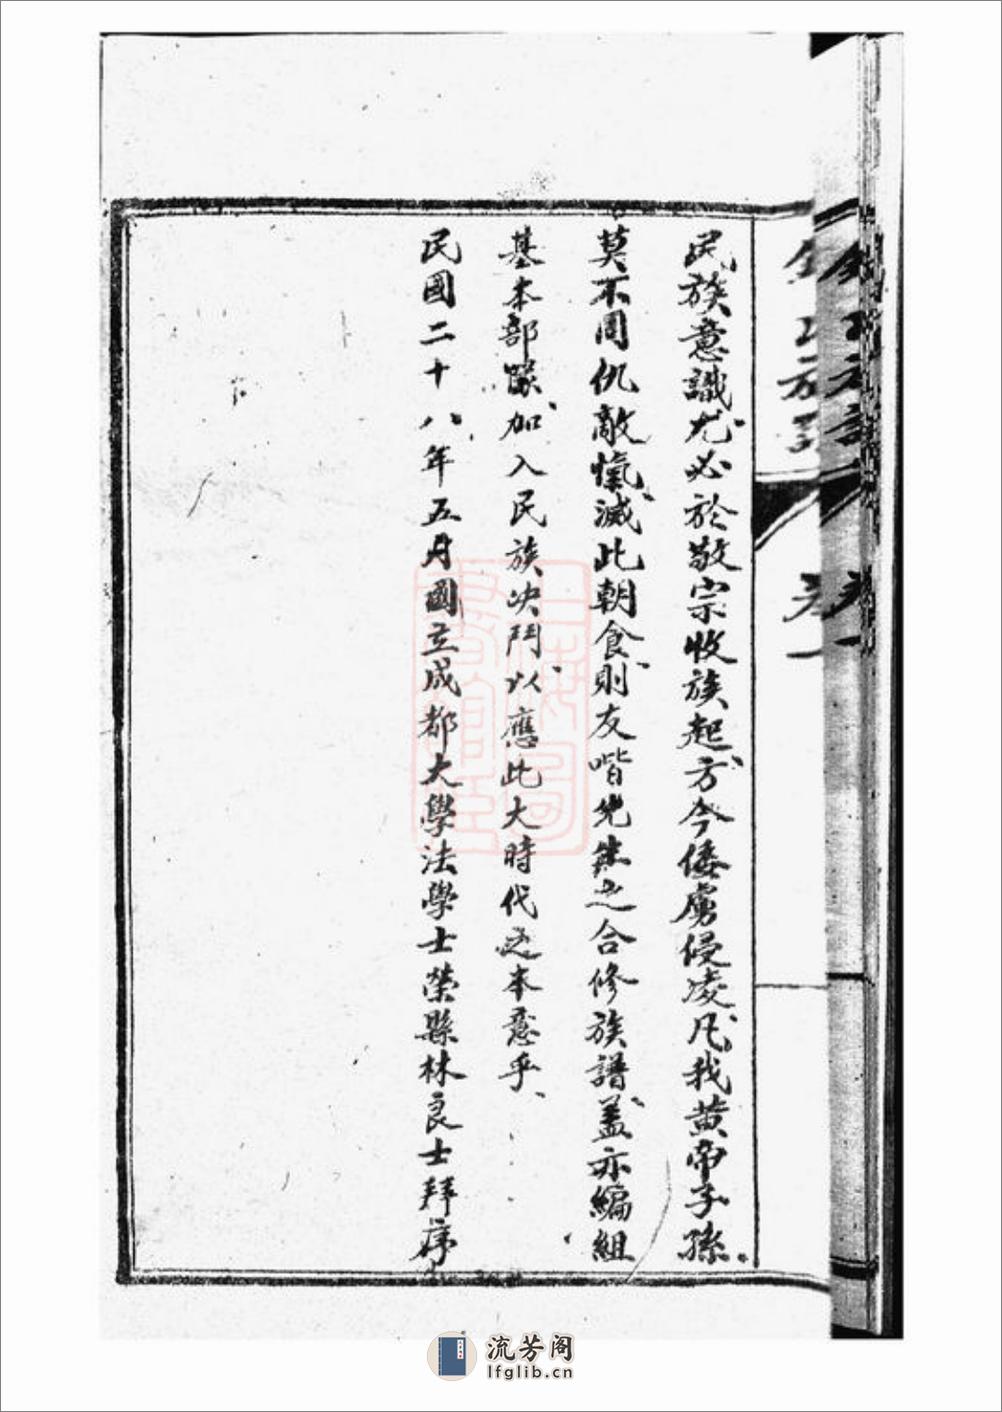 民族意識、尤必於敬宗收族起、方今倭虜侵凌、凡我黄帝子孫、
莫不同仇敵愾、滅此朝食、則友喈先生之合修族譜、蓋亦編組
基本部隊、加入民族决鬥、以應此大時代之本意乎、
民國二十八年五月國立成都大學法學士榮縣林良士拜序
上海圖
書館藏
流芳阁
lfglib.cn